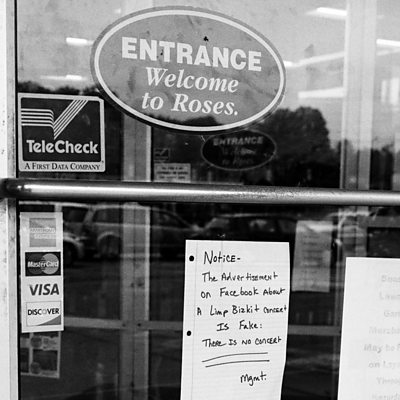 ENTRANCE
Welcome
to Roses.
TeleCheck
A FIRST DATA COMPANY
ENTRANCE
MasterCard
VISA
DISCOVER
Notice-
The Advertisement
on Facebook About
A Limp Bizkit concert
Is Fake:
There Is no concert
Mgmt.